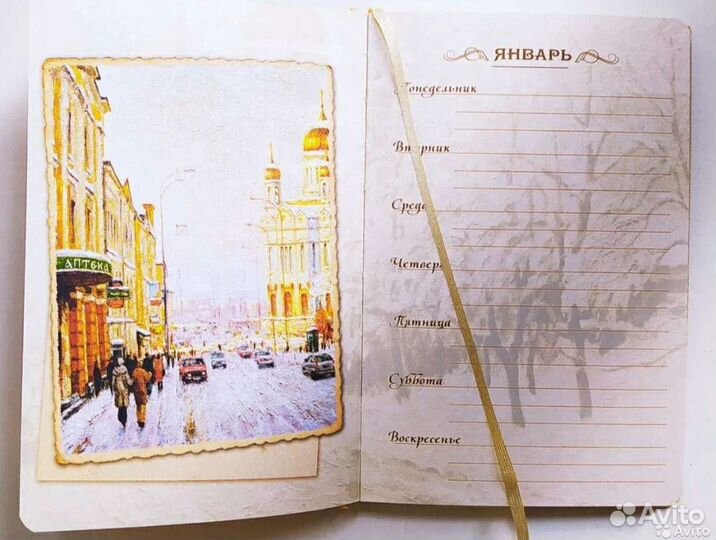 АПТЕКА
ЯНВАРЬ
Понедельник
Вторник
Среда
Четверг
Пятница
Суббота
Воскресенье
Avito
Avito